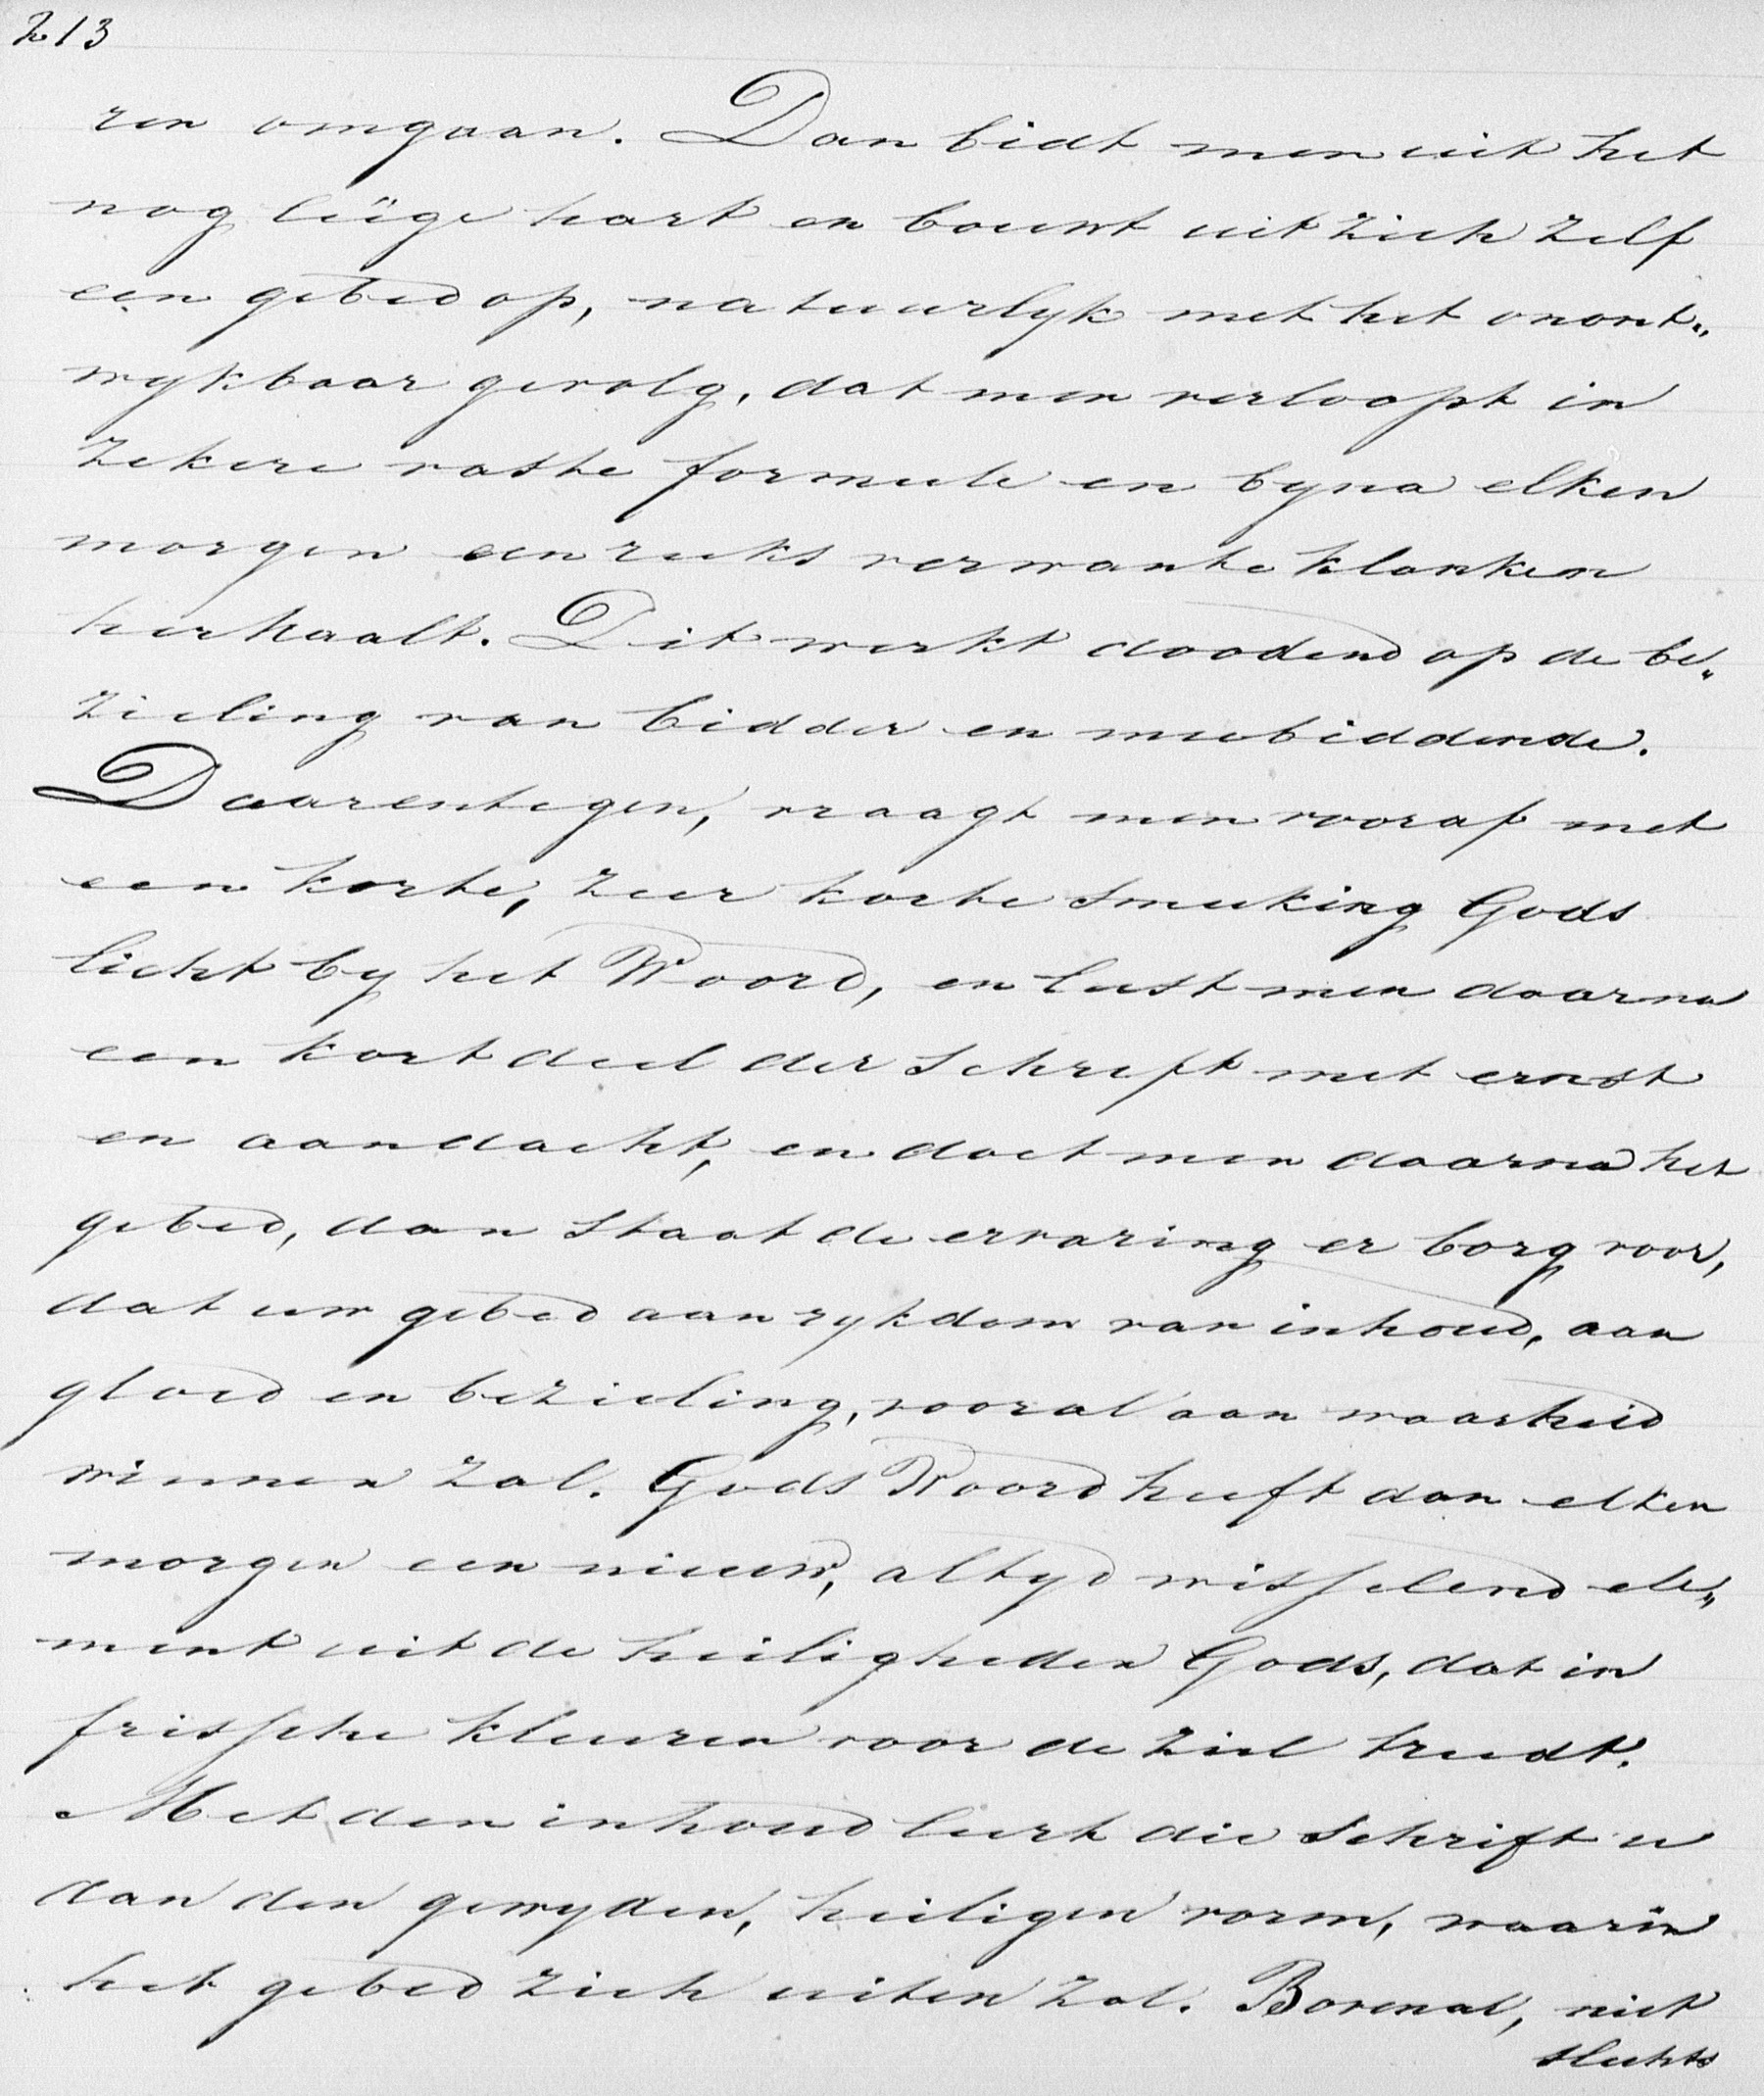 213
ren omgaan. Dan bidt men uit het
nog leige hart en bouwt uit zich zelf
een gebed op, natuurlyk met het onont„
wykbaar gevolg, dat men verloopt in
zekere vaste formule en byna elken
morgen een reeks verwante klanken
herhaalt. Dit werkt doodend op de be„
zieling van bidder en meebiddende.
Daarentegen, vraagt men vooraf met
een korte, zeer korte smeeking Gods
licht by het Woord, en leest men daarna
een kort deel der Schrift met ernst
en aandacht, en doet men daarna het
gebed, dan staat de ervaring er borg voor,
dat uw gebed aan rykdom van inhoud, aan
gloed en bezieling, vooral aan waarheid
winnen zal. Gods Woord heeft dan elken
morgen een nieuw, altyd wisselend ele„
ment uit de heiligheden Gods, dat in
frissche kleuren voor de ziel treedt.
Met den inhoud leert die Schrift u
dan den gewyden, heiligen vorm, waarin
het gebed zich uiten zal. Bovenal, niet
slechts